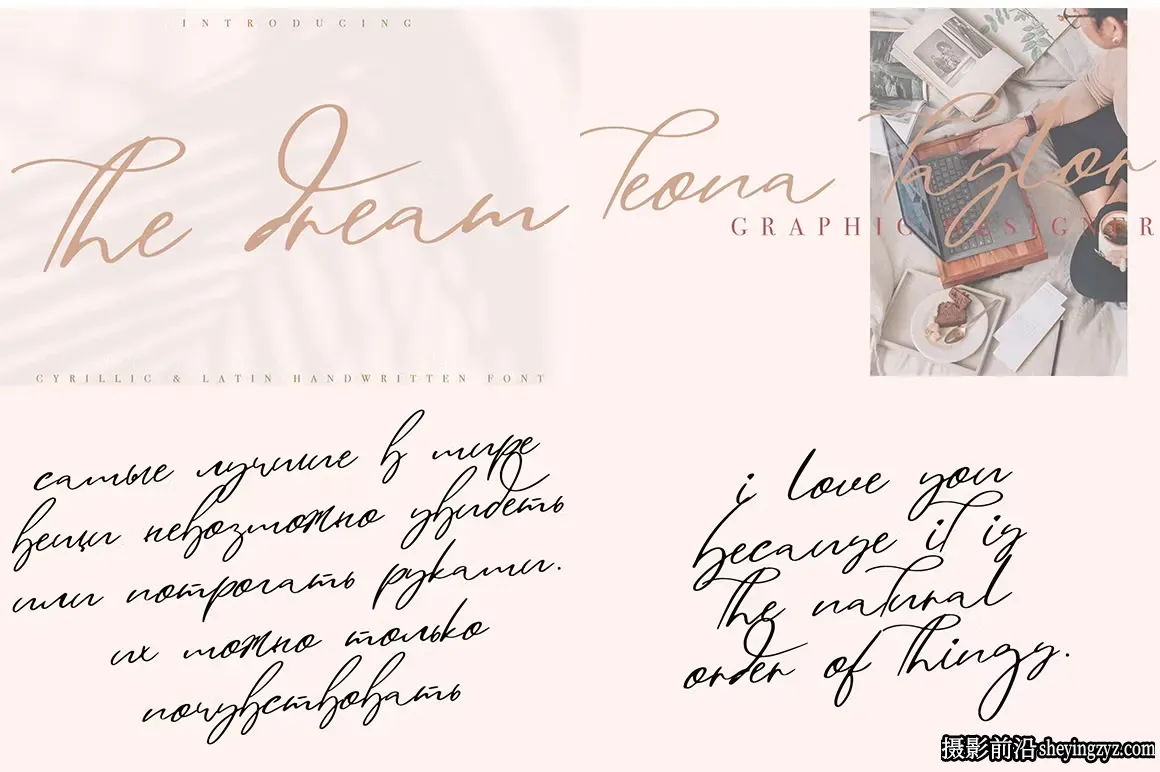 INTRODUCING
The dream
CYRILLIC & LATIN HANDWRITTEN FONT
Teona Taylor
GRAPHIC DESIGNER
самые лучшие в мире
вещи невозможно увидеть
или потрогать руками.
их можно только
почувствовать
i love you
because it is
the natural
order of things.
摄影前沿 sheyingzyz.com